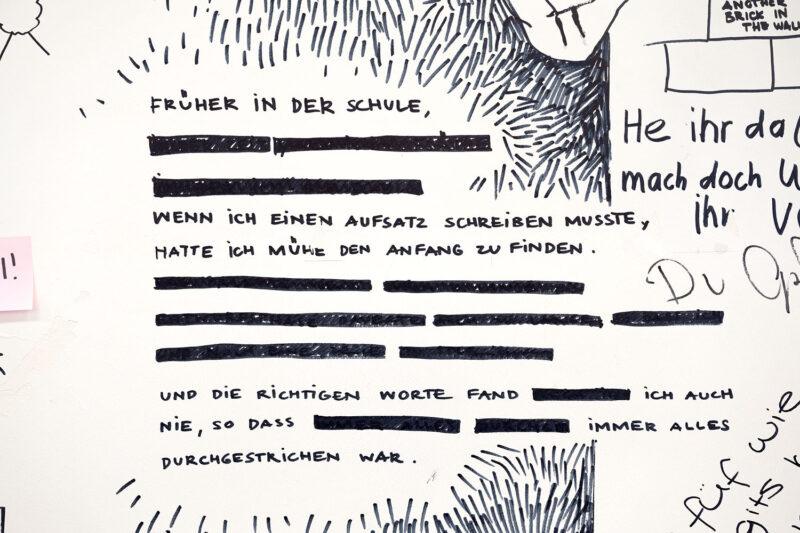 FRÜHER IN DER SCHULE,
WENN ICH EINEN AUFSATZ SCHREIBEN MUSSTE,
HATTE ICH MÜHE DEN ANFANG ZU FINDEN.
UND DIE RICHTIGEN WORTE FAND ICH AUCH
NIE, SO DASS IMMER ALLES
DURCHGESTRICHEN WAR.
ANOTHER
BRICK IN
THE WALL
He ihr da
mach doch
ihr
Du
für wie
!